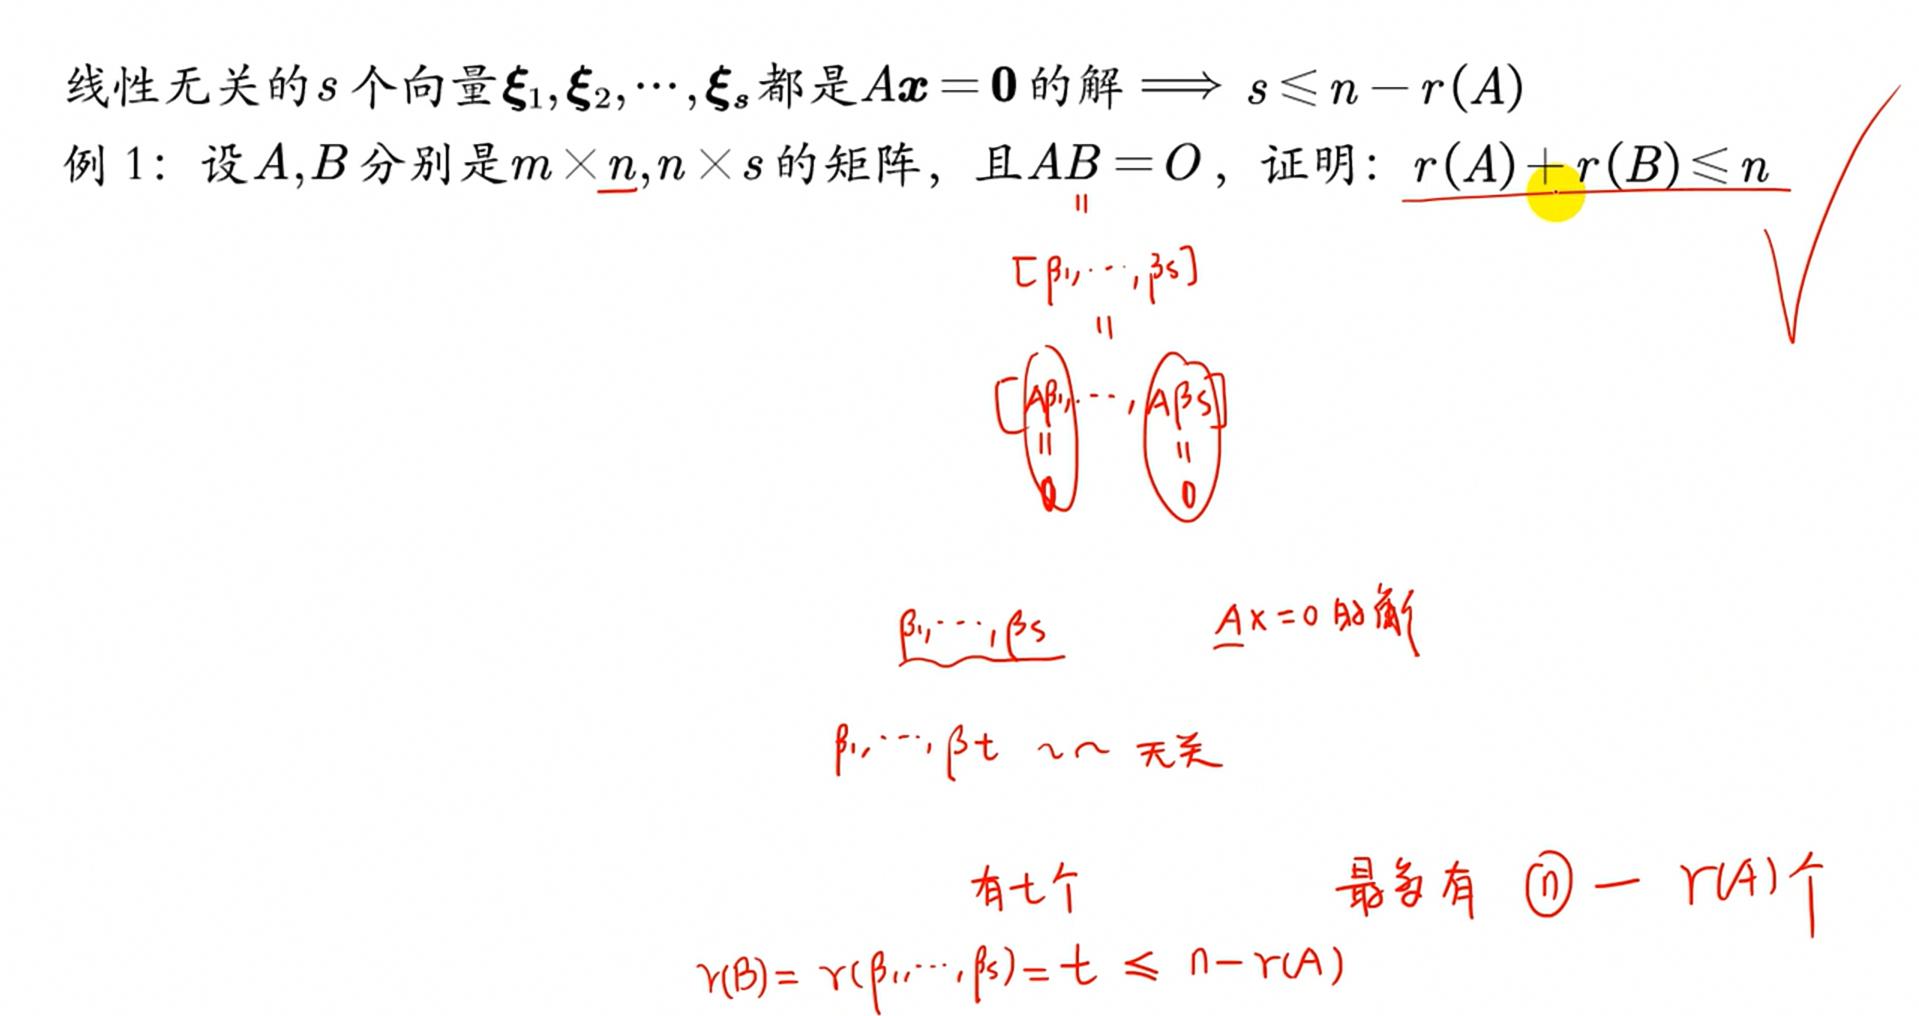 线性无关的s个向量ξ₁,ξ₂,⋯,ξₛ都是Ax=0的解⟹s⩽n−r(A)
例1：设A,B分别是m×n,n×s的矩阵，且AB=O，证明：r(A)+r(B)⩽n
=
[β₁,⋯,βs]
=
[Aβ₁,⋯,Aβs]
= =
0 0
β₁,⋯,βs Ax=0的解
β₁,⋯,βt ~~ 无关
有t个 最多有 n − r(A)个
r(B)=r(β₁,⋯,βs)=t ≤ n−r(A)